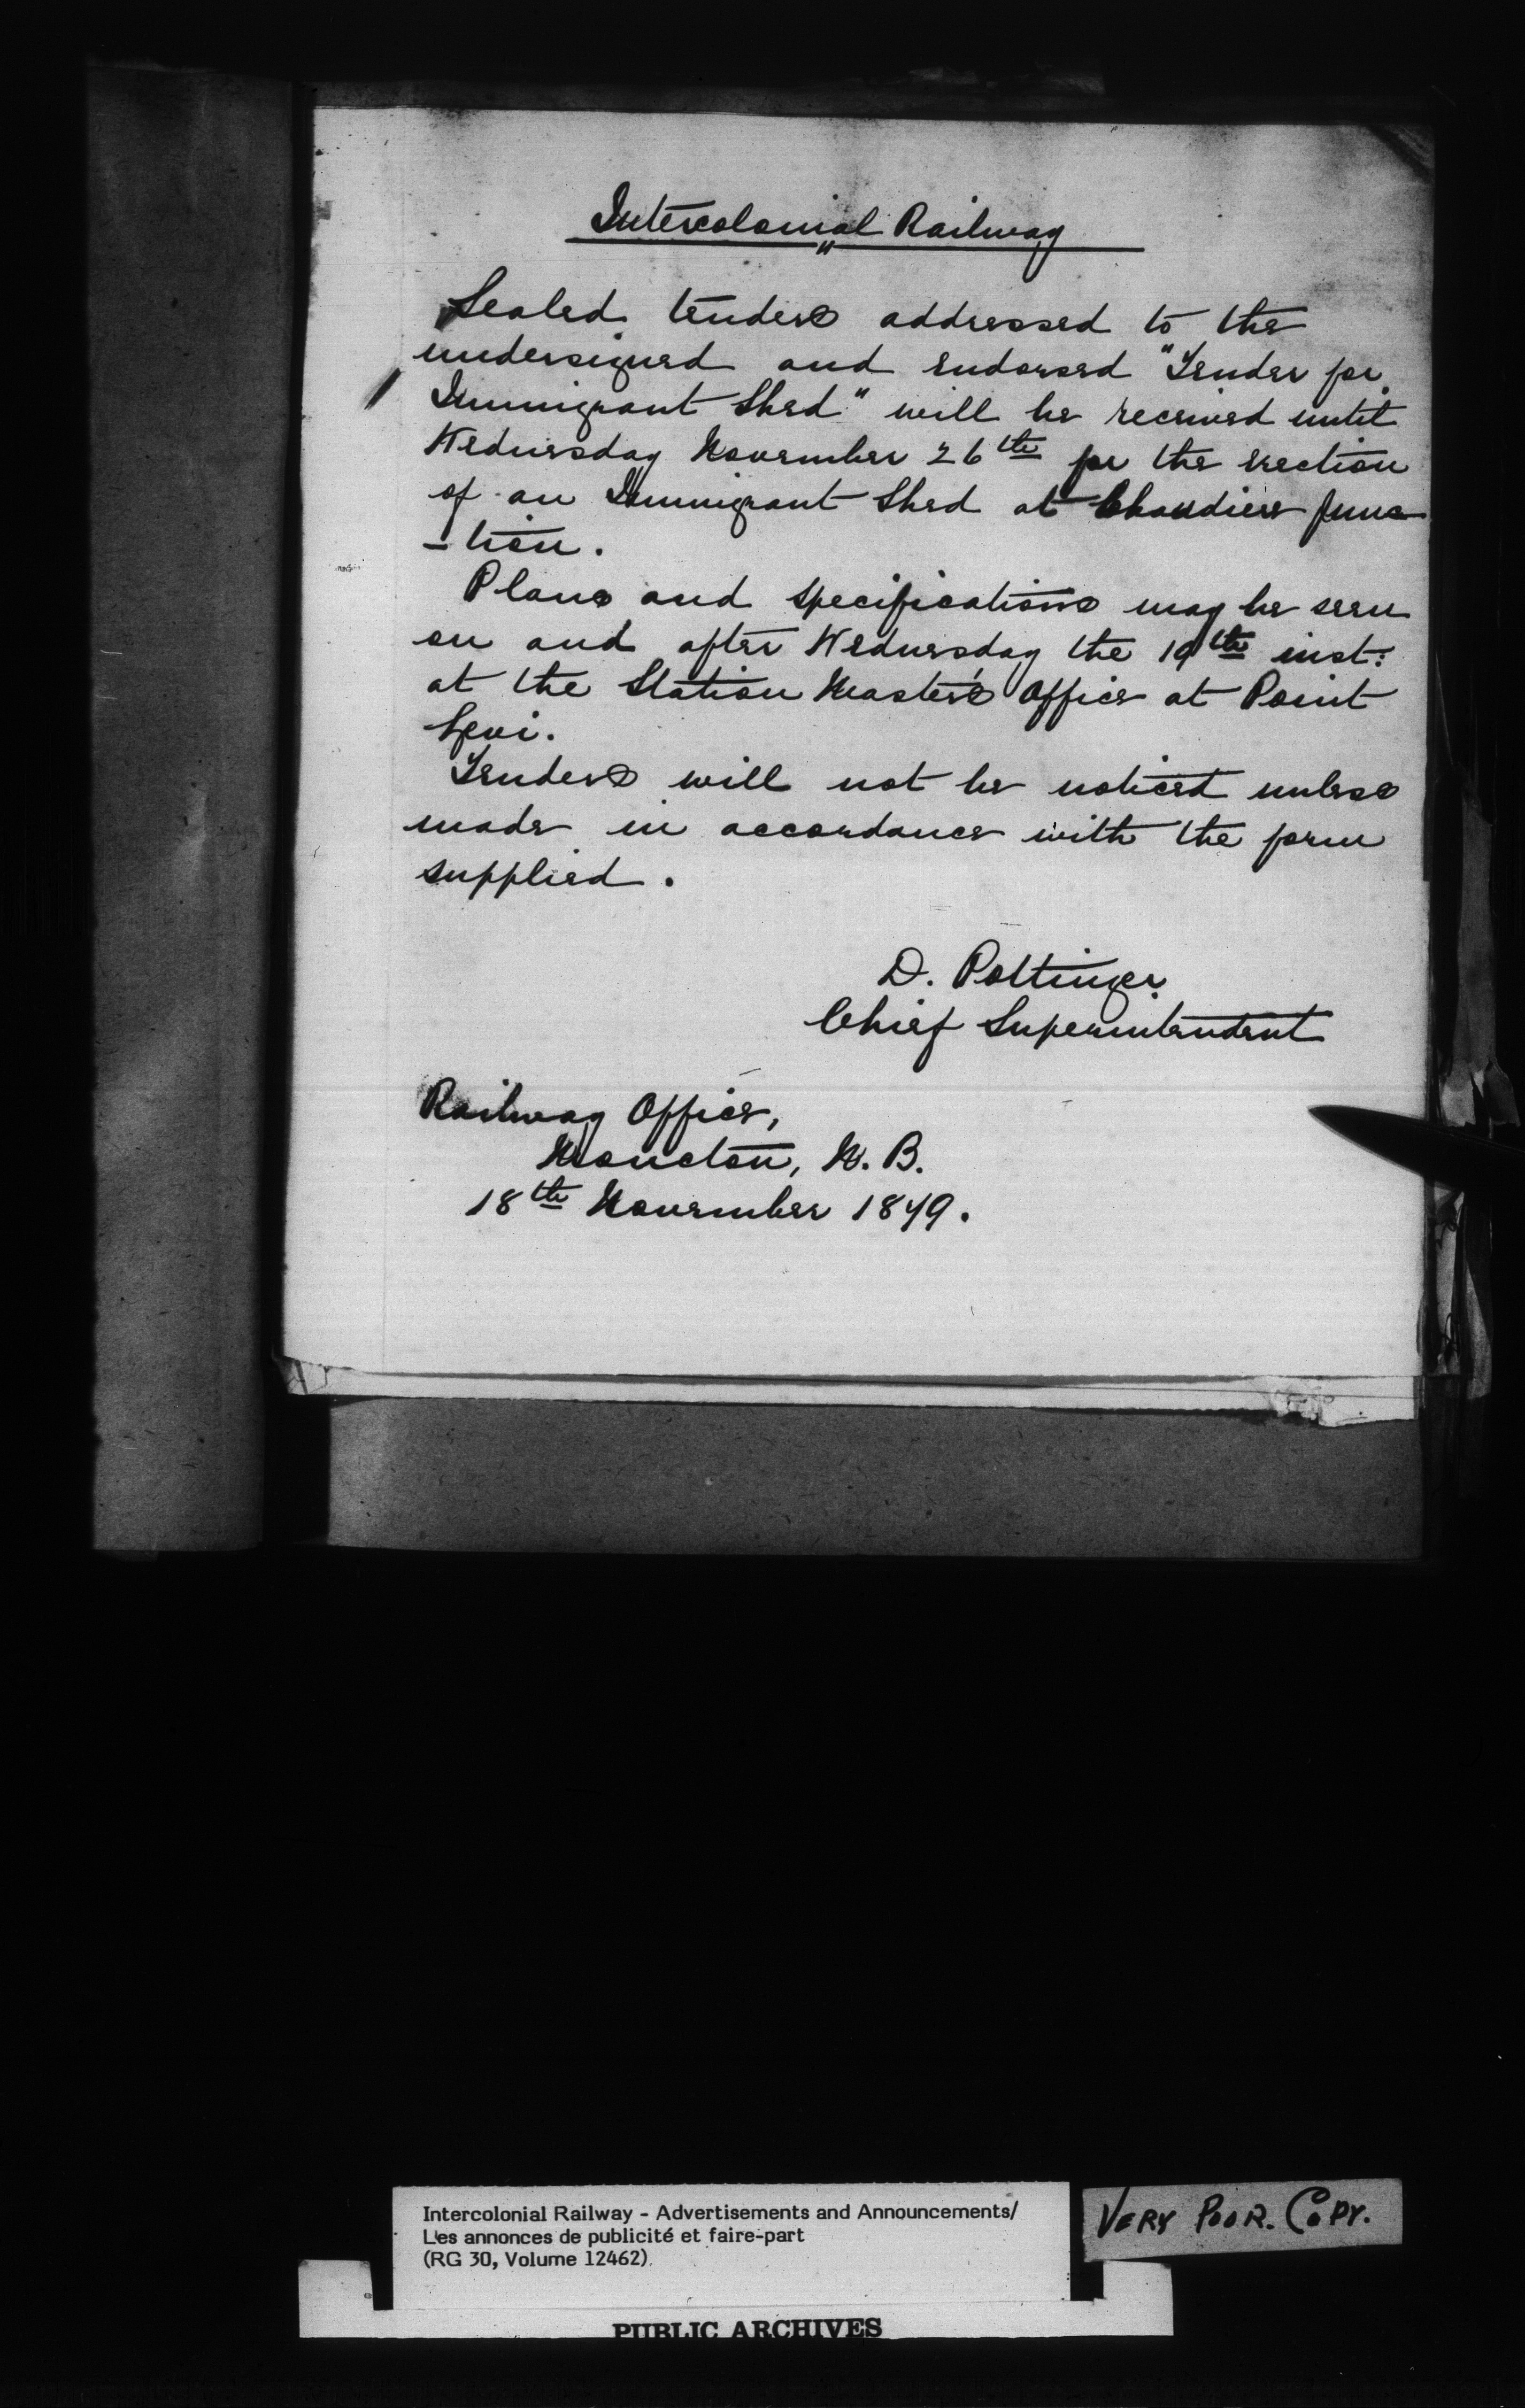 Intercolonial Railway
"
Sealed tenders addressed to the
undersigned and endorsed "Tender for
Immigrant Shed" will be received until
Wednesday November 26th for the erection
of an Immigrant Shed at Chaudiere Junc
-tion.
Plans and specifications may be seen
on and after Wednesday the 19th inst:
at the Station Master's Office at Point
Levi.
Tenders will not be noticed unless
made in accordance with the form
supplied.
D. Pottinger
Chief Superintendent
Railway Office,
Moncton, N. B.
18th November 1879.
Intercolonial Railway - Advertisements and Announcements/
Les annonces de publicité et faire-part
(RG 30, Volume 12462).
VERY POOR. COPY.
PUBLIC ARCHIVES